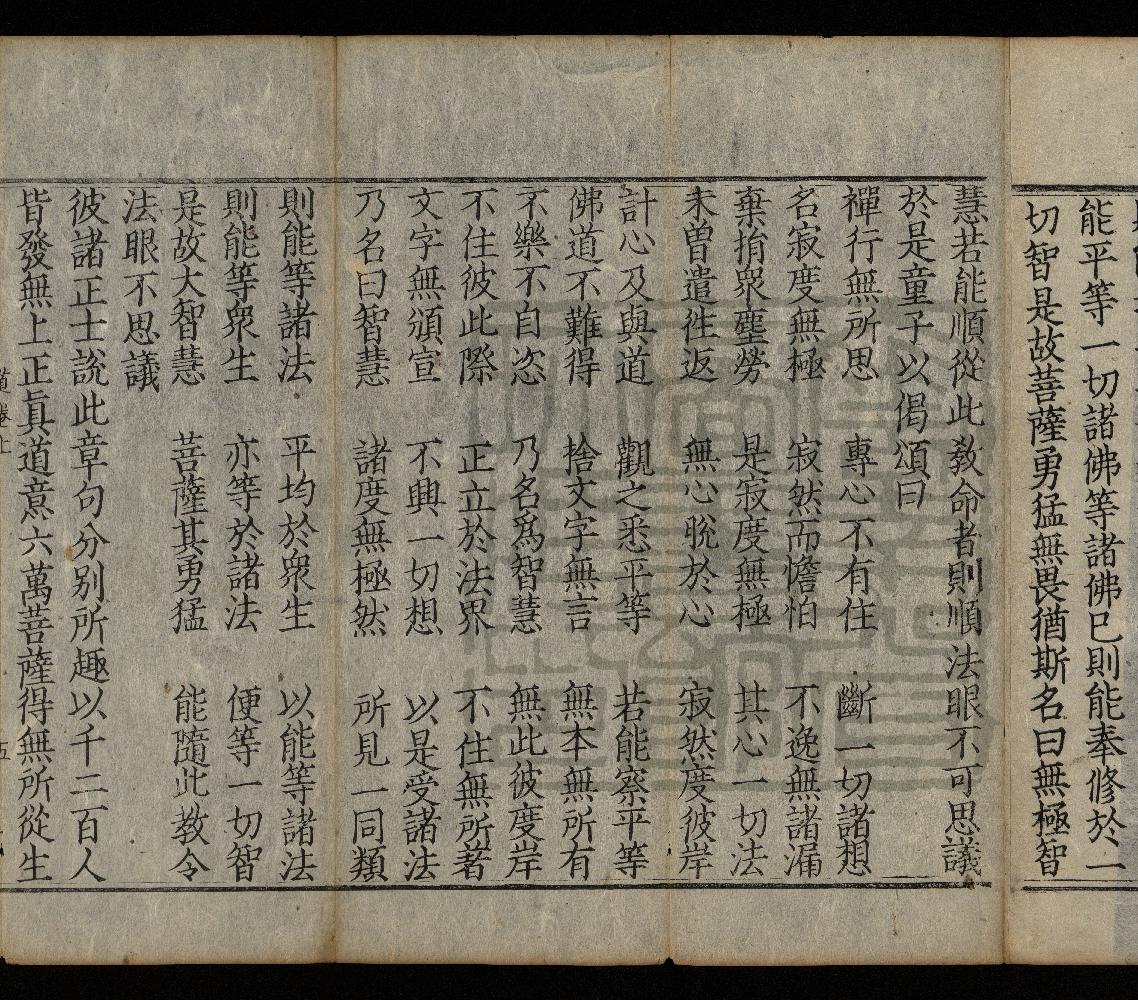 能平等一切諸佛等諸佛已則能奉修於一
切智是故菩薩勇猛無畏猶斯名曰無極智
慧若能順從此教命者則順法眼不可思議
於是童子以偈頌曰
禪行無所思　專心不有住　斷一切諸想
名寂度無極　寂然而憺怕　不逸無諸漏
棄捐眾塵勞　是寂度無極　其心一切法
未曾遣徃返　無心脫於心　寂然度彼岸
計心及與道　觀之悉平等　若能察平等
佛道不難得　捨文字無言　無本無所有
不樂不自恣　乃名爲智慧　無此彼度岸
不住彼此際　正立於法界　不住無所著
文字無頒宣　不興一切想　以是受諸法
乃名曰智慧　諸度無極然　所見一同類
則能等諸法　平均於眾生　以能等諸法
則能等眾生　亦等於諸法　便等一切智
是故大智慧　菩薩其勇猛　能隨此教令
法眼不思議
彼諸正士說此章句分别所趣以千二百人
皆發無上正眞道意六萬菩薩得無所從生